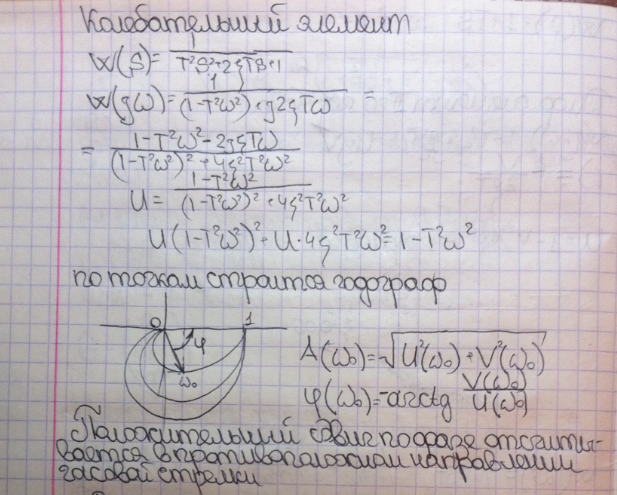 Колебательный элемент
W(S) = 1/(T²S²+2ξTS+1)
W(jω) = 1/((1-T²ω²)+j2ξTω) =
= (1-T²ω²-2jξTω)/((1-T²ω²)²+4ξ²T²ω²)
U = (1-T²ω²)/((1-T²ω²)²+4ξ²T²ω²)
U(1-T²ω²)²+U·4ξ²T²ω²=1-T²ω²
по точкам строится годограф
0 1
φ
ω₀
A(ω₀)=√(U²(ω₀)+V²(ω₀))
φ(ω₀)=-arctg V(ω₀)/U(ω₀)
Положительный сдвиг по фазе отсчиты-
вается в противоположном направлении
часовой стрелки